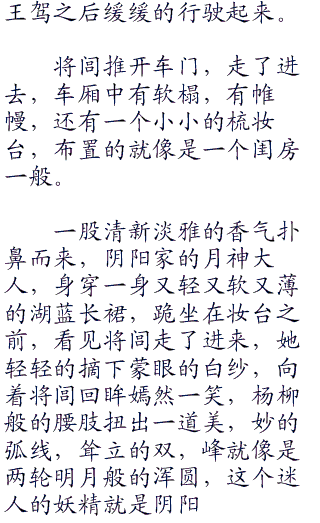 王驾之后缓缓的行驶起来。
将闾推开车门，走了进
去，车厢中有软榻，有帷
幔，还有一个小小的梳妆
台，布置的就像是一个闺房
一般。
一股清新淡雅的香气扑
鼻而来，阴阳家的月神大
人，身穿一身又轻又软又薄
的湖蓝长裙，跪坐在妆台之
前，看见将闾走了进来，她
轻轻的摘下蒙眼的白纱，向
着将闾回眸嫣然一笑，杨柳
般的腰肢扭出一道美，妙的
弧线，耸立的双，峰就像是
两轮明月般的浑圆，这个迷
人的妖精就是阴阳